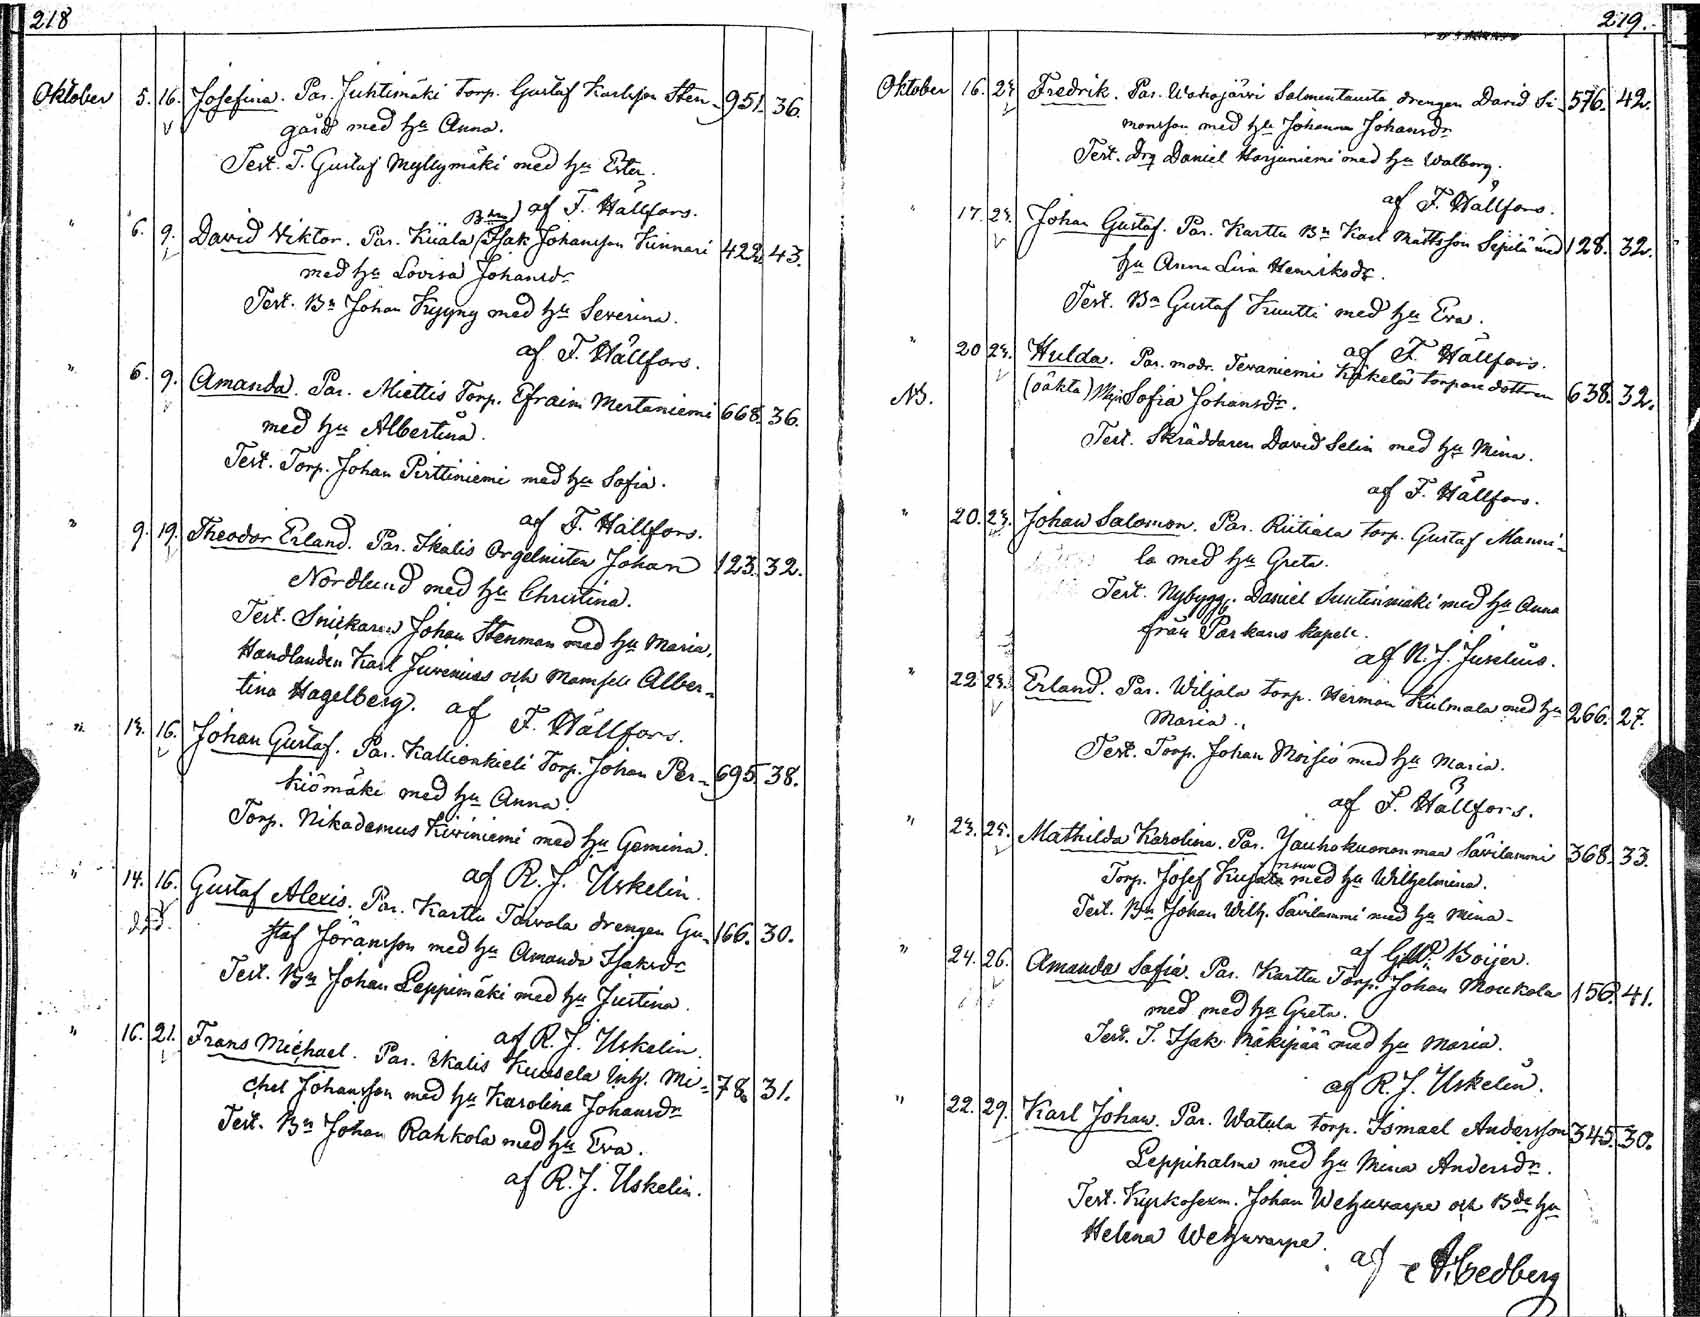 218
Oktober 5. 16. Josefina. Par. Juhtimäki Torp. Gustaf Karlsson Sten- 951. 36.
gård med hu Anna.
Test. T. Gustaf Myllymäki med hu Ester.
af F. Hällfors.
" 6. 9. David Viktor. Par. Kiiala Bdn Isak Johansson Kinnari 422. 43.
med hu Lovisa Johansdr
Test. Bn Johan Kyyny med hu Severina.
af F. Hällfors.
" 6. 9. Amanda. Par. Miettis Torp. Efraim Mertaniemi 668. 36.
med hu Albertina.
Test. Torp. Johan Pirttiniemi med hu Sofia.
af F. Hällfors.
" 9. 19. Theodor Erland. Par. Ikalis Orgelnisten Johan 123. 32.
Nordlund med hu Christina.
Test. Snickaren Johan Stenman med hu Maria,
Handlanden Karl Juvenius och Mamsell Alber-
tina Hagelberg. af F. Hällfors.
" 13. 16. Johan Gustaf. Par. Kallionkieli Torp. Johan Per- 695. 38.
kiömäki med hu Anna.
Torp. Nikademus Kiviniemi med hu Gemina.
af R. J. Uskelin.
" 14. 16. Gustaf Alexis. Par. Karttu Tarvola drengen Gu- 166. 30.
död.
staf Jöransson med hu Amanda Isaksdr
Test. Bn Johan Leppimäki med hu Justina.
af R. J. Uskelin.
" 16. 21. Frans Michael. Par. Ikalis Kuusela Inh. Mi- 78. 31.
chel Johansson med hu Karolina Johansdr
Test. Bn Johan Rahkola med hu Eva.
af R. J. Uskelin.
219.
Oktober 16. 23. Fredrik. Par. Wahojärvi Salmentausta drengen David Si- 576. 42.
monsson med hu Johanna Johansdr
Test. drg Daniel Harjuniemi med hu Walborg.
af F. Hällfors.
" 17. 23. Johan Gustaf. Par. Karttu Bn Karl Mattsson Sepilä med 128. 32.
hu Anna Lisa Henriksdr.
Test. Bn Gustaf Kuutti med hu Eva.
af F. Hällfors.
" 20 23. Hulda. Par. modr. Tevaniemi Käkelä torpare dottren 638. 32.
NB. (oäkta) Sofia Johansdr.
Test. Skräddaren David Selin med hu Mina.
af F. Hällfors.
" 20. 23. Johan Salomon. Par. Riitiala torp. Gustaf Manni-
la med hu Greta.
Test. Nybygg. Daniel Suntinmäki med hu Anna
från Parkano kapell.
af N. J. Juselius.
" 22 23. Erland. Par. Wiljala torp. Herman Kulmala med hu 266. 27.
Maria.
Test. Torp. Johan Moisio med hu Maria.
af F. Hällfors.
" 23. 25. Mathilda Karolina. Par. Jauhokuononmaa Sävilammi 368. 33.
Torp. Josef Kujansuu med hu Wilhelmina.
Test. Bn Johan Wilh. Sävilammi med hu Mina
af G. W. Boijer.
" 24. 26. Amanda Sofia. Par. Karttu Torp. Johan Moukola 156. 41.
med med hu Greta.
Test. T. Isak Mäkipää med hu Maria.
af R. J. Uskelin.
" 22. 29. Karl Johan. Par. Watula torp. Ismael Andersson 345. 30.
Leppihalme med hu Mina Andersdr.
Test. Kyrkosexm. Johan Wehuvarpe och Bde hu
Helena Wehuvarpe.
af A. Cedberg